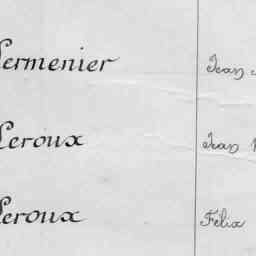 Lermenier Jean
Leroux Jean
Leroux Félix